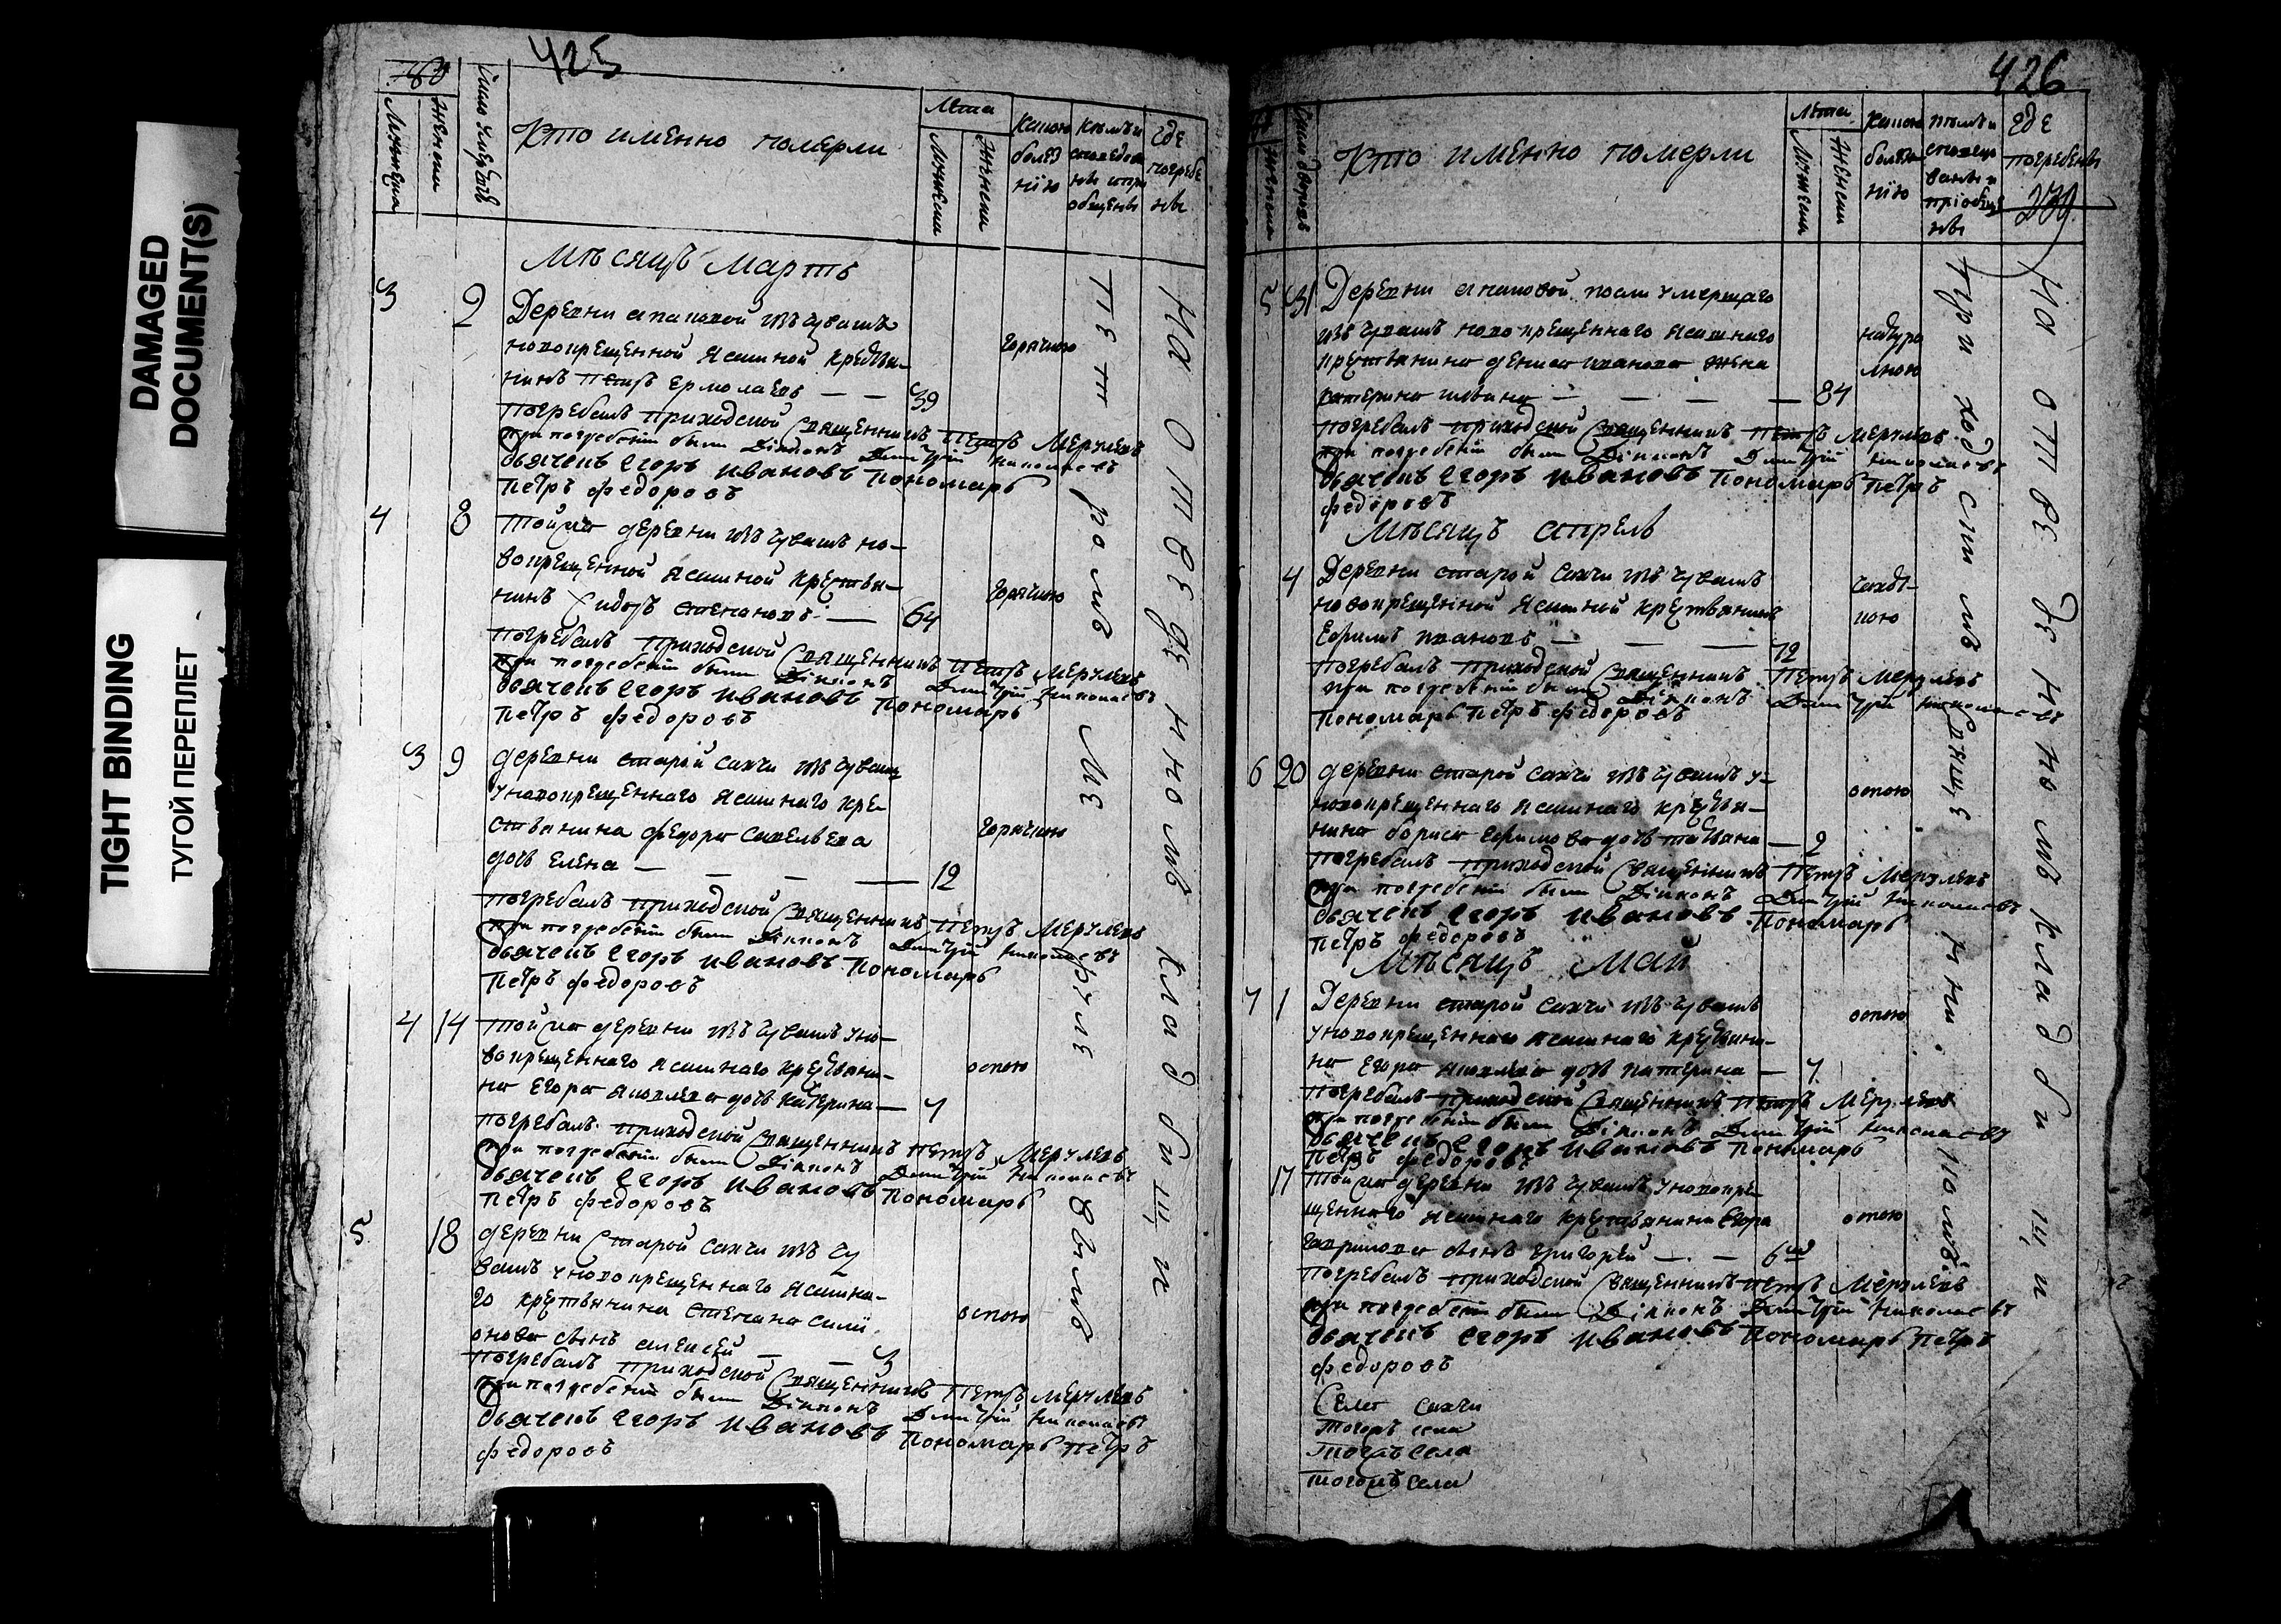 DAMAGED
DOCUMENT(S)
TIGHT BINDING
ТУГОЙ ПЕРЕПЛЕТ
425
Число умерших
Мужеска
Женска
Кто именно померли
Лѣта
Мужеска
Женска
Какою болезнію
Кемъ исповедованы и приобщены
Где погребены
Мѣсяцъ Мартъ
3 2 Деревни изъ чувашъ
новокрещенной ясашной крестья-
нинъ Петръ Ермолаевъ — — 39
горячкою
погребалъ приходской Священникъ Петръ Меркулевъ
при погребеніи были Діаконъ Димитрій Николаевъ
дьячекъ Егоръ Ивановъ Пономарь
Петръ Федоровъ
4 8 тойже деревни изъ чувашъ но-
вокрещенной ясашной крестья-
нинъ Сидоръ Степановъ — 64
горячкою
погребалъ приходской Священникъ Петръ Меркулевъ
при погребеніи были Діаконъ Димитрій Николаевъ
дьячекъ Егоръ Ивановъ Пономарь
Петръ Федоровъ
3 9 деревни старой Сахчи изъ чувашъ
у новокрещеннаго ясашнаго кре-
стьянина Федора Савельева
дочь Елена — — — — 12
горячкою
погребалъ приходской Священникъ Петръ Меркулевъ
при погребеніи были Діаконъ Димитрій Николаевъ
дьячекъ Егоръ Ивановъ Пономарь
Петръ Федоровъ
4 14 тойже деревни изъ чувашъ у но-
вокрещеннаго ясашнаго крестьяни-
на Егора Яковлева дочь Катерина — 7
оспою
погребалъ приходской Священникъ Петръ Меркулевъ
при погребеніи были Діаконъ Димитрій Николаевъ
дьячекъ Егоръ Ивановъ Пономарь
Петръ Федоровъ
5 18 деревни Старой Сахчи изъ чу
вашъ у новокрещеннаго ясашна-
го крестьянина Степана Сили
онова сынъ Алексей — — 3
оспою
погребалъ приходской Священникъ Петръ Меркулевъ
при погребеніи были Діаконъ Димитрій Николаевъ
дьячекъ Егоръ Ивановъ Пономарь Петръ
Федоровъ
Петромъ Меркулевымъ
На отведенномъ кладбищи
426
Кто именно померли
Лѣта
Мужеска
Женска
Какою болезнію
Кемъ исповедованы и приобщены
Где погребены
239
5 31 Деревни после умершаго
изъ чувашъ новокрещеннаго ясашнаго
крестьянина Дениса Иванова жена
Катерина — — — — 84
натуральною
погребалъ приходской Священникъ Петръ Меркулевъ
при погребеніи были Діаконъ Димитрій Николаевъ
дьячекъ Егоръ Ивановъ Пономарь Петръ
Федоровъ
Мѣсяцъ Апрель
4 Деревни старой Сахчи изъ чувашъ
новокрещенной ясашной крестьянинъ
Ефимъ Ивановъ — — — 72
погребалъ приходской Священникъ Петръ Меркулевъ
при погребеніи были Діаконъ Димитрій Николаевъ
Пономарь Петръ Федоровъ
6 20 деревни старой Сахчи изъ чувашъ у
новокрещеннаго ясашнаго крестья-
нина Бориса Ефимова дочь Татьяна — 2
оспою
погребалъ приходской Священникъ Петръ Меркулевъ
при погребеніи были Діаконъ Димитрій Николаевъ
дьячекъ Егоръ Ивановъ Пономарь
Петръ Федоровъ
Мѣсяцъ Май
7 1 Деревни старой Сахчи изъ чувашъ
у новокрещеннаго ясашнаго крестьяни-
на Егора Яковлева дочь Катерина — 7
оспою
погребалъ приходской Священникъ Петръ Меркулевъ
при погребеніи были Діаконъ Димитрій Николаевъ
дьячекъ Егоръ Ивановъ Пономарь
Петръ Федоровъ
17 Тойже деревни изъ чувашъ у новокре
щеннаго ясашнаго крестьянина Егора
Гаврилова сынъ Григорей — — 6
оспою
погребалъ приходской Священникъ Петръ Меркулевъ
при погребеніи были Діаконъ Димитрій Николаевъ
дьячекъ Егоръ Ивановъ Пономарь Петръ
Федоровъ
Села Сахчи
Тогожъ села
Тогожъ села
Тогожъ села
Приходскимъ Священникомъ
На отведенномъ кладбищи